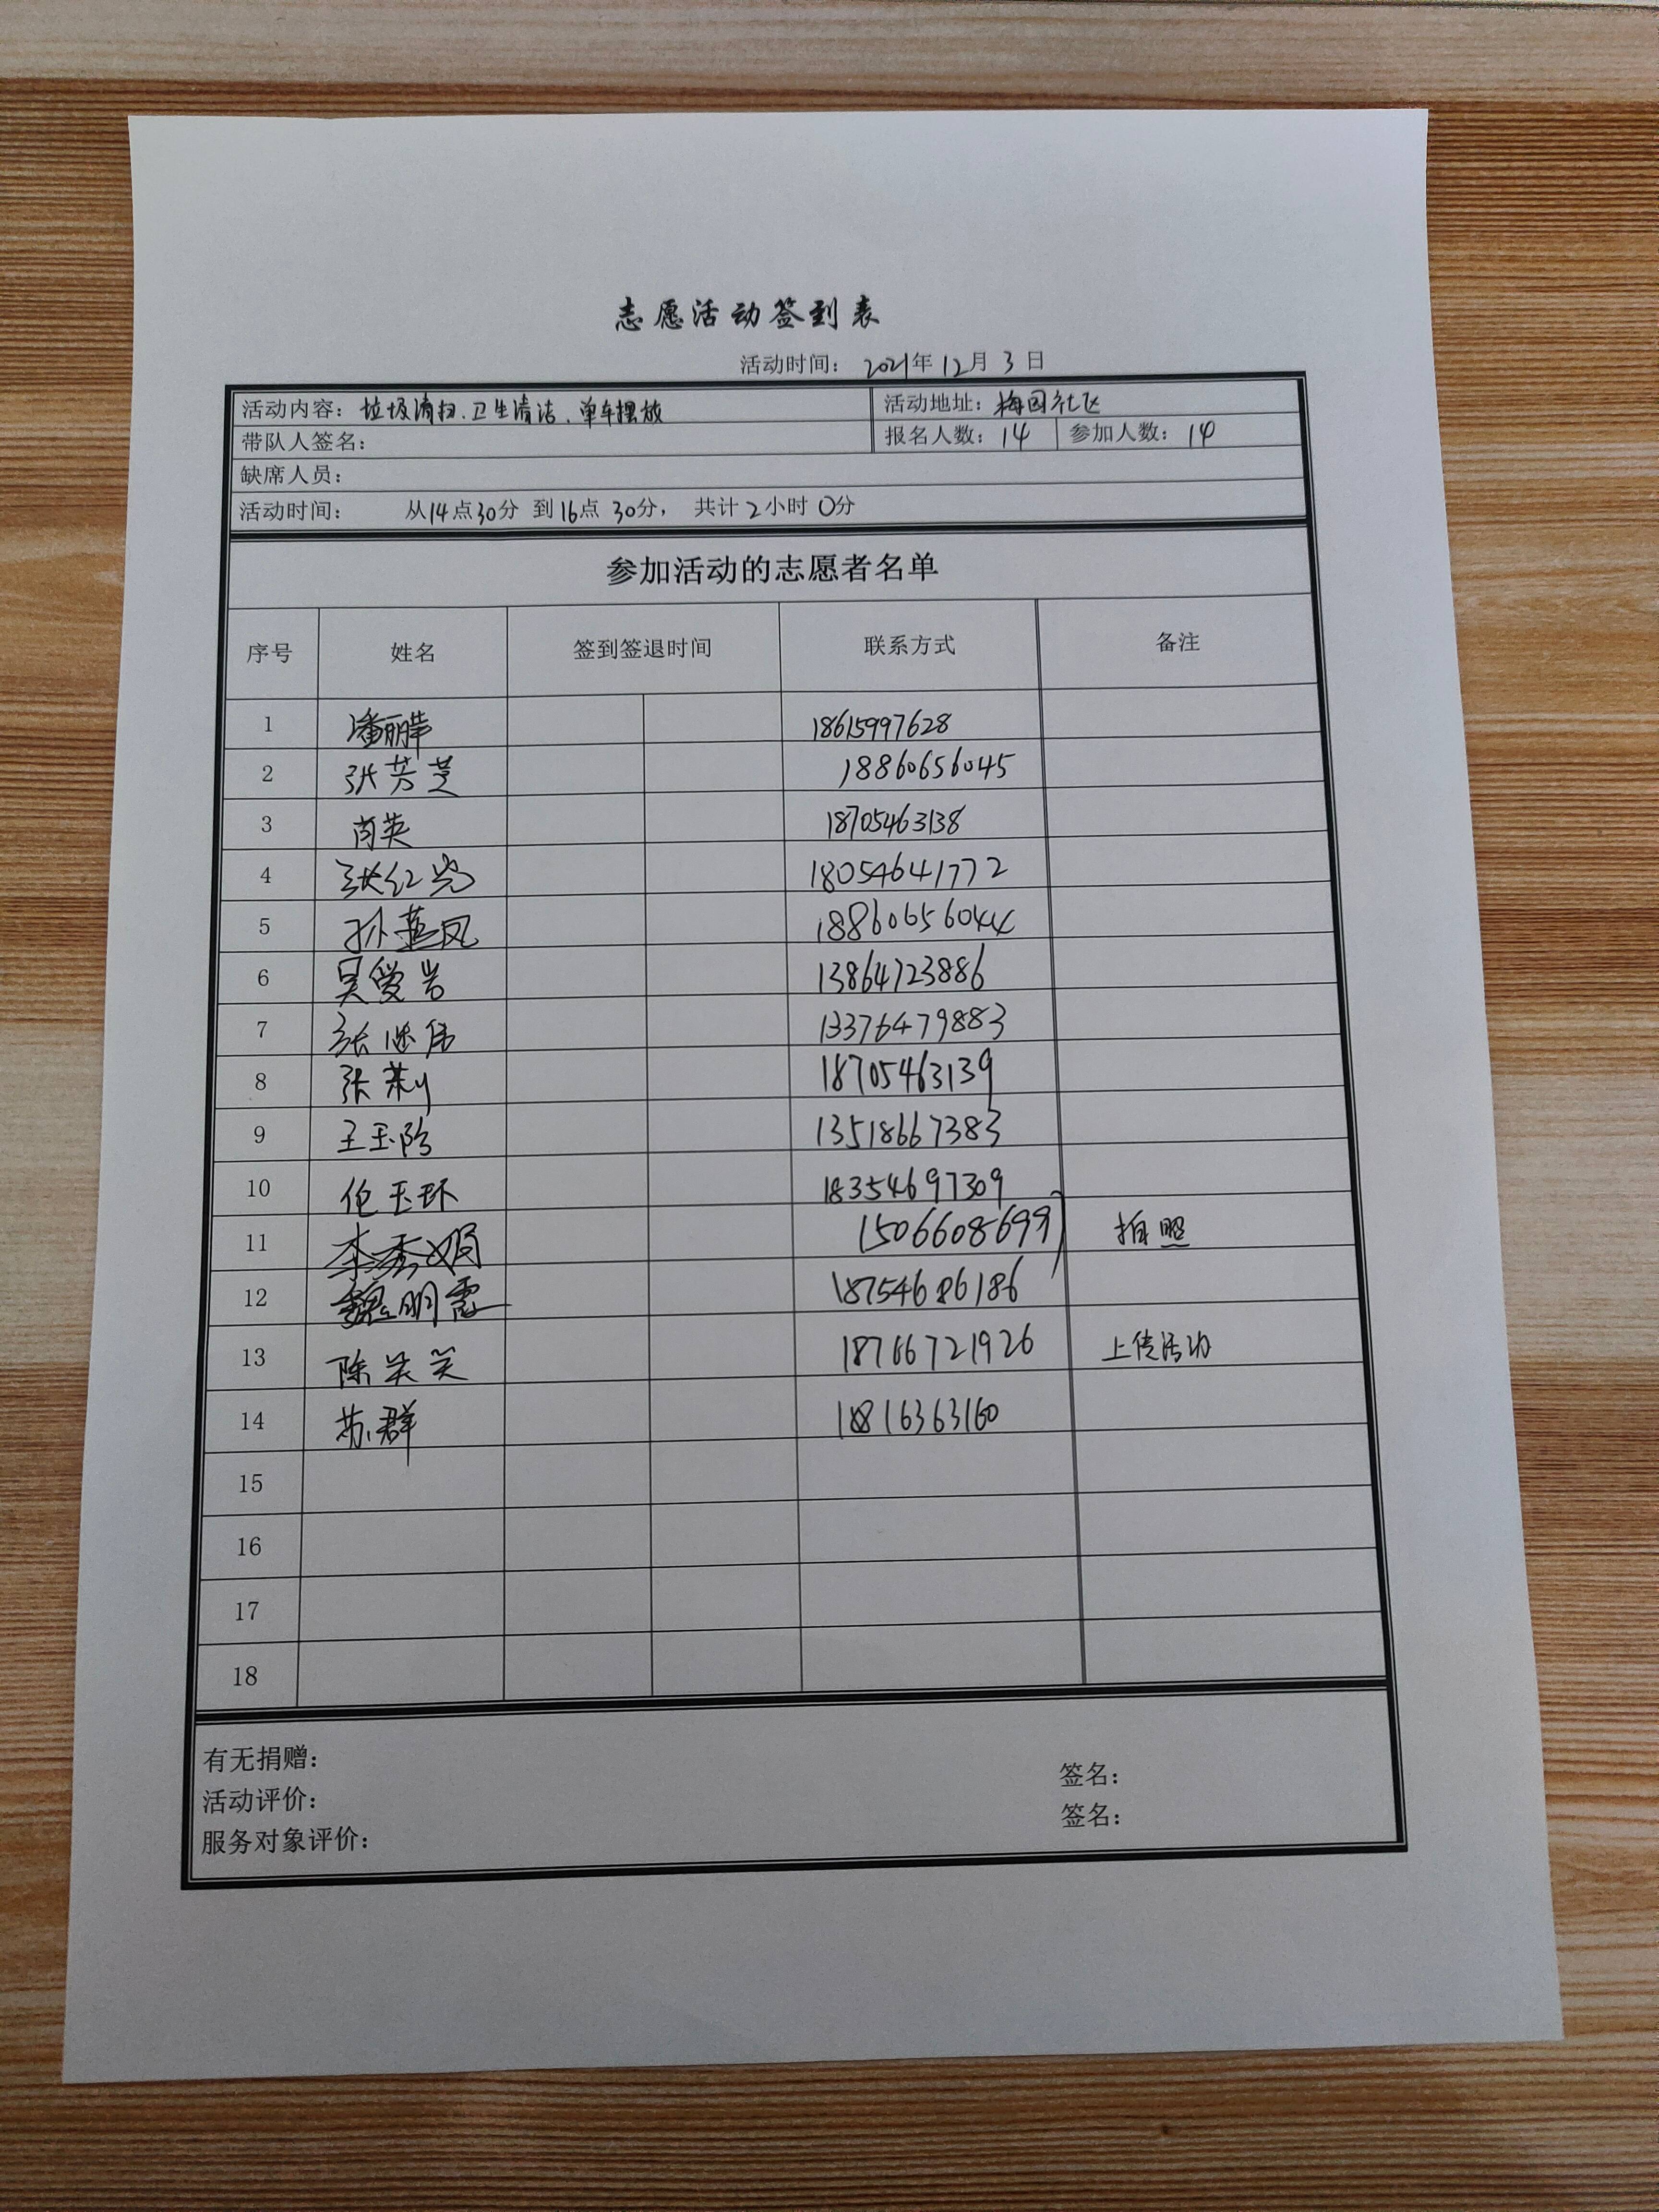 志愿活动签到表
活动时间： 2021年 12月 3 日
活动内容：垃圾清扫、卫生清洁、单车摆放 活动地址：梅园社区
带队人签名： 报名人数：14 参加人数：14
缺席人员：
活动时间： 从14点30分 到16点 30分， 共计2小时 0分
参加活动的志愿者名单
序号 姓名 签到签退时间 联系方式 备注
1 潘丽萍 18615997628
2 张芳芝 18860656045
3 肖英 18705463138
4 张红岩 18054641772
5 孙燕凤 18860656044
6 吴爱岩 13864723886
7 张继伟 13376479883
8 张莉 18705463139
9 王玉珍 13518667383
10 玉环 18354697309
11 李秀娟 15066085699 拍照
12 魏明霞 18754686186
13 陈笑笑 18766721926 上传活动
14 苏群 18816363160
15
16
17
18
有无捐赠：
活动评价： 签名：
服务对象评价： 签名：